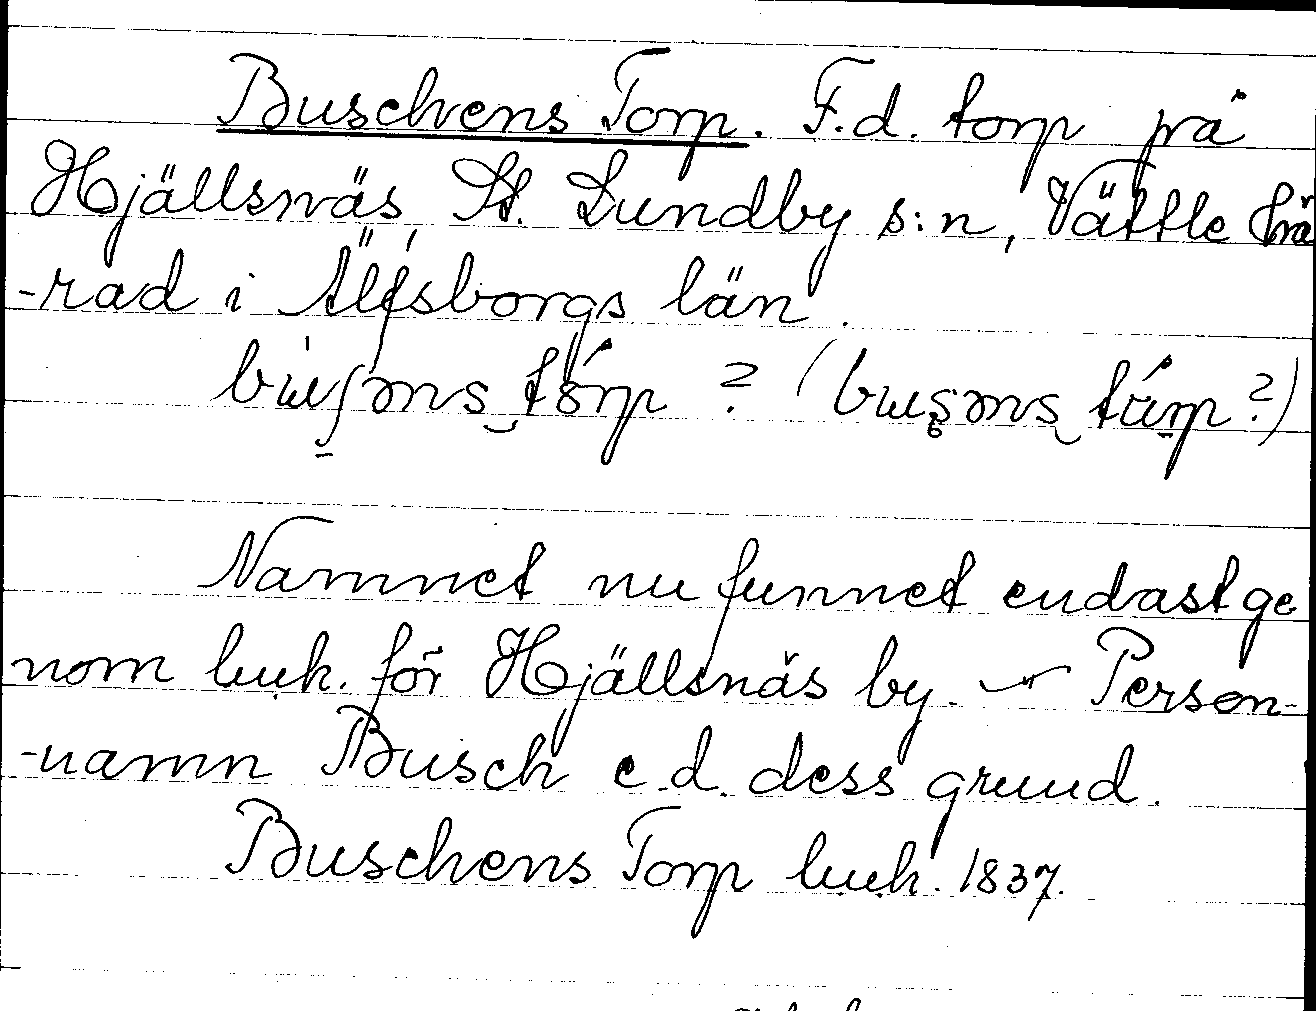 Buschens Torp. F.d. torp på
Hjällsnäs, St. Lundby s:n, Vättle hä
-rad i Älfsborgs län.
buʃəns tórp ? (
Namnet nu funnet endast ge
nom huk. för Hjällsnäs by. – Person-
-namn Busch e.d. dess grund.
Buschens Torp huk. 1837.